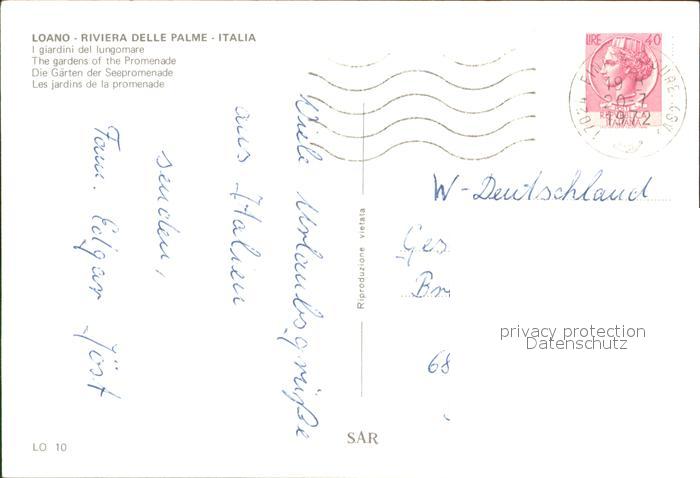 LOANO - RIVIERA DELLE PALME - ITALIA
I giardini del lungomare
The gardens of the Promenade
Die Gärten der Seepromenade
Les jardins de la promenade
LIRE 40
19
20-7
1972
17024 FINALE LIGURE (SV)
Viele Urlaubsgrüße
aus Italien
senden,
Fam. Edgar Jöst
Riproduzione vietata
W-Deutschland
Ges
Br
68
privacy protection
Datenschutz
SAR
LO 10